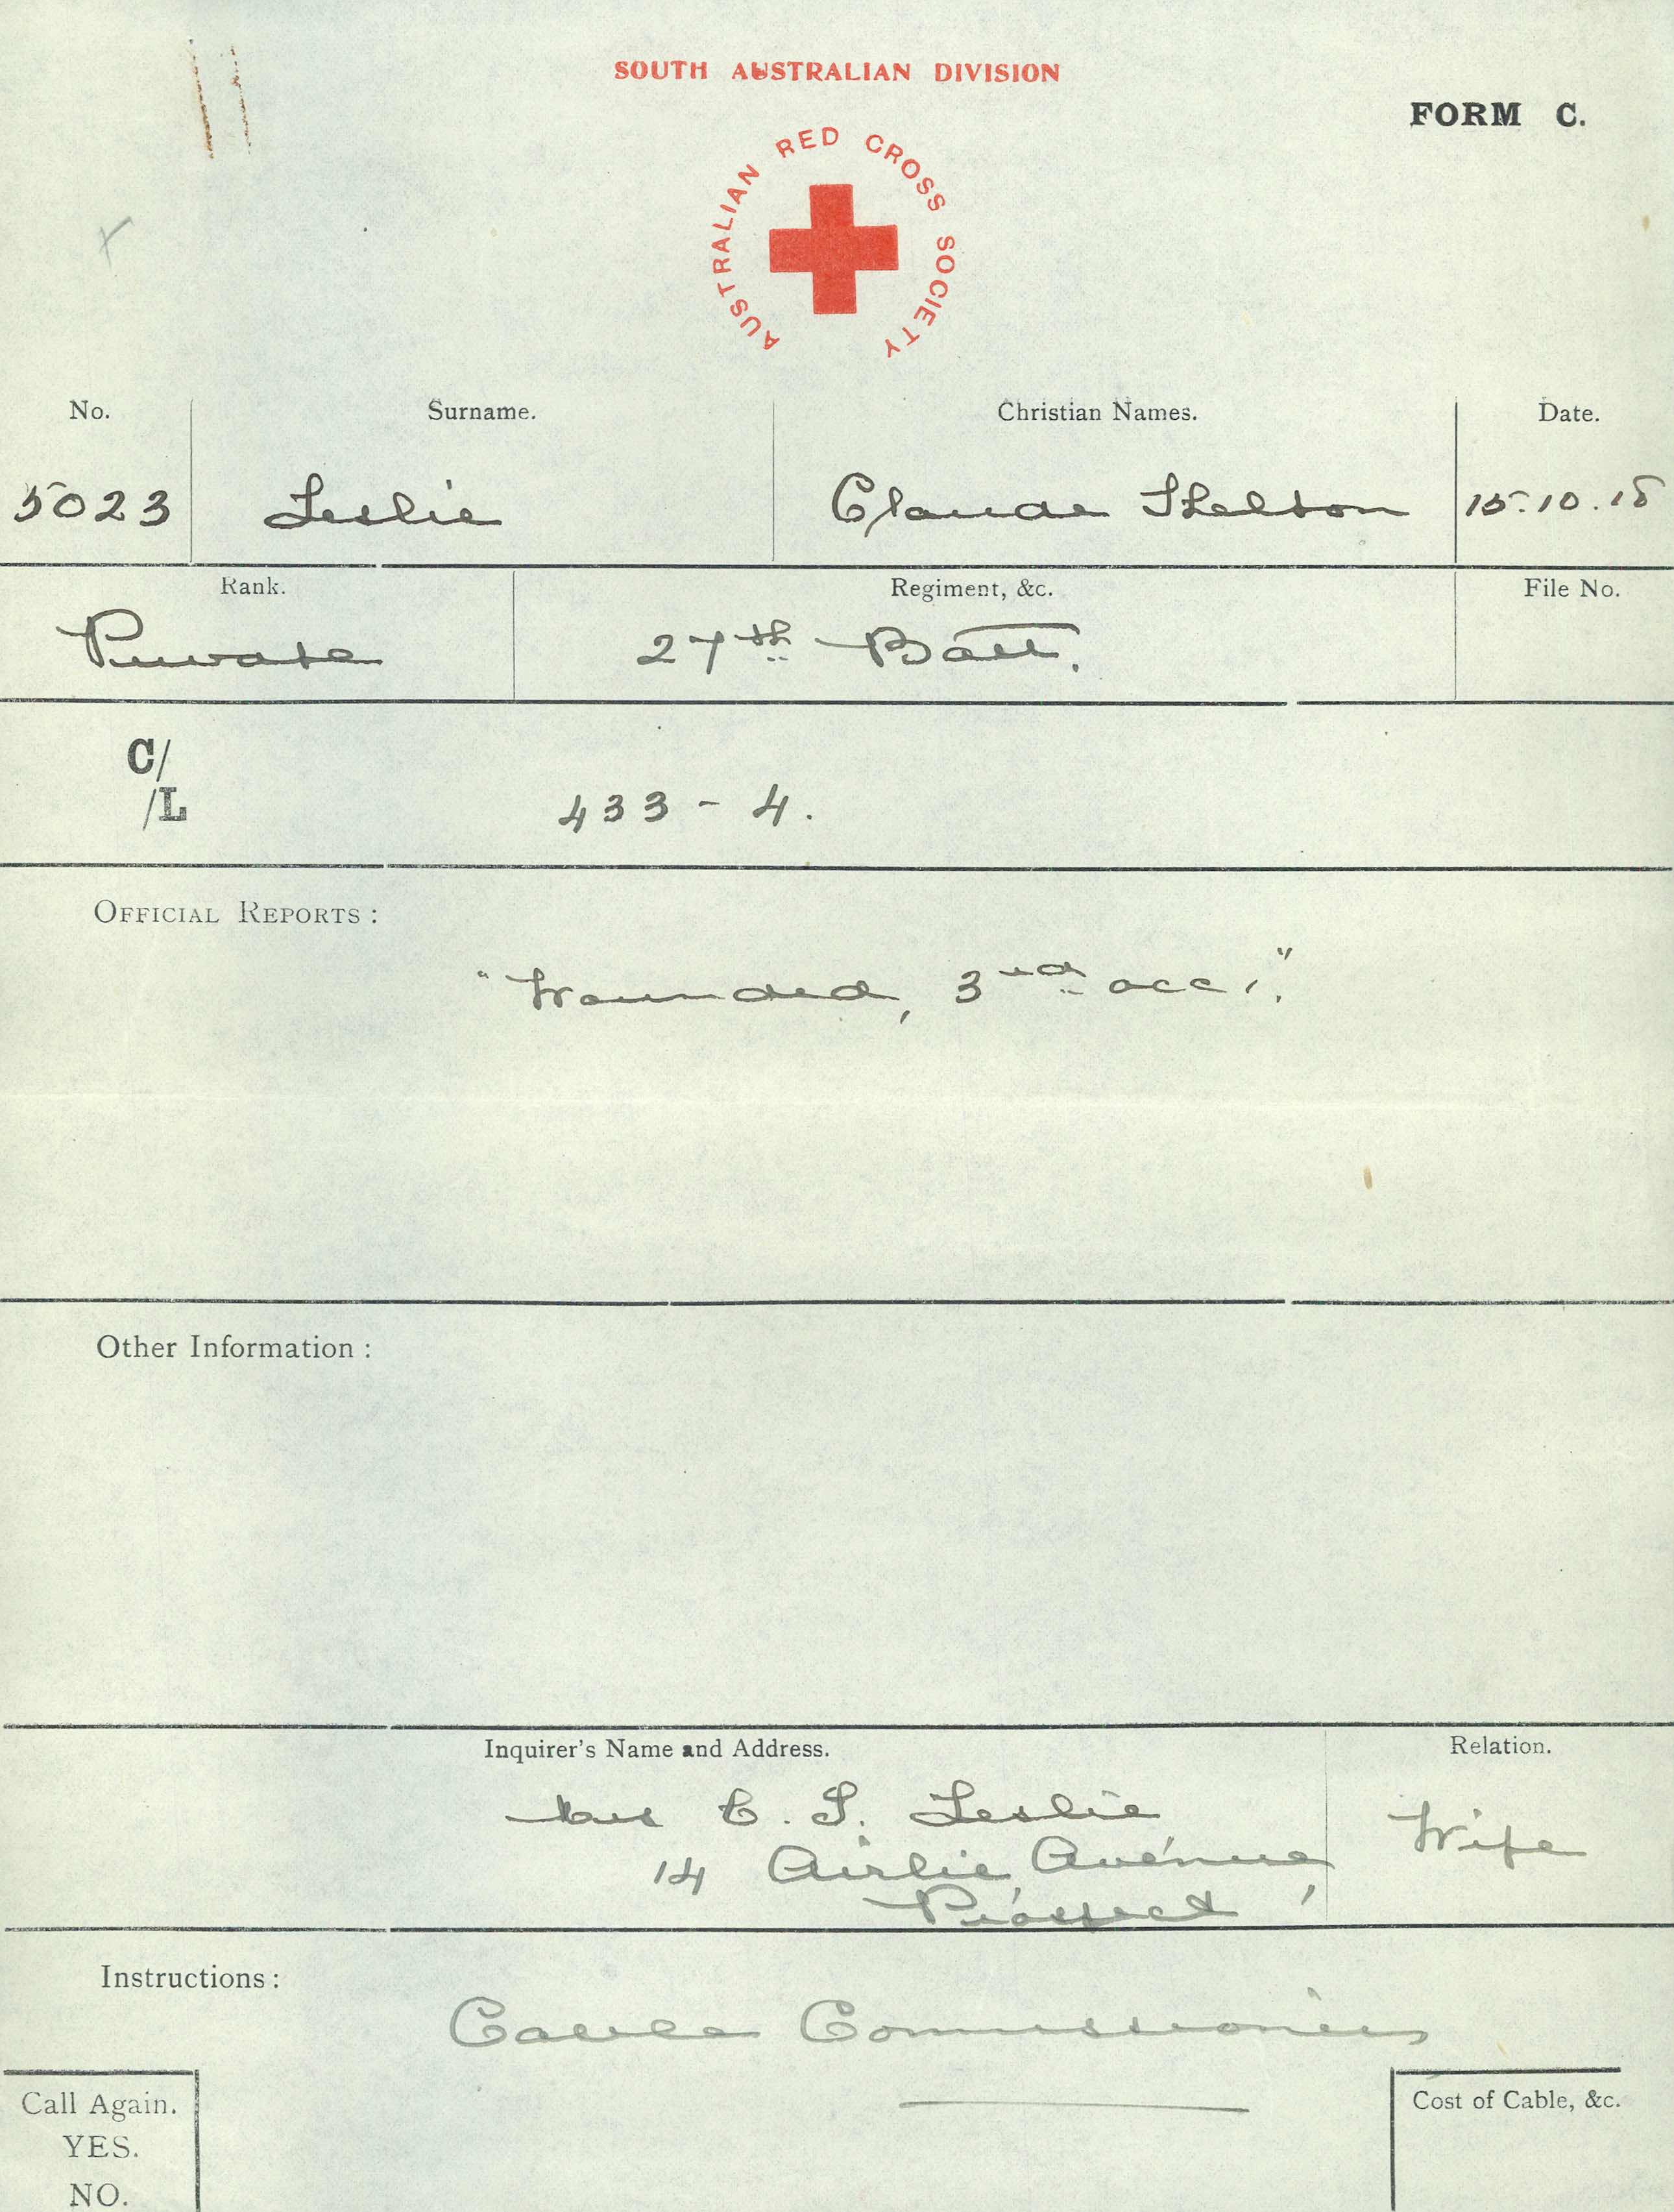 SOUTH AUSTRALIAN DIVISION
FORM C.
AUSTRALIAN RED CROSS SOCIETY
No. Surname. Christian Names. Date.
5023 Leslie Claude Shelton 15.10.18
Rank. Regiment, &c. File No.
Private 27th Batt.
C/
/L
433 - 4.
OFFICIAL REPORTS :
"Wounded, 3rd occ."
Other Information :
Inquirer's Name and Address. Relation.
Mrs C. S. Leslie
14 Airlie Avenue,
Prospect
Wife
Instructions :
Cable Commissioners
Call Again.
YES.
NO.
Cost of Cable, &c.